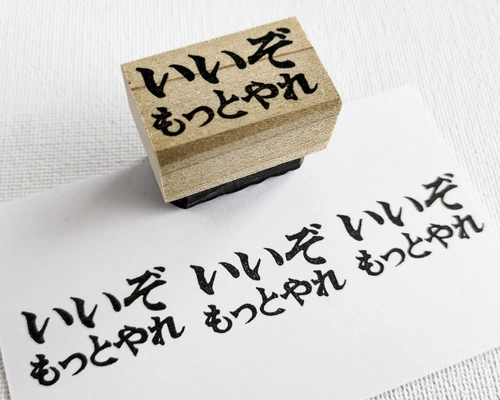 いいぞ
もっとやれ
いいぞ
もっとやれ
いいぞ
もっとやれ
いいぞ
もっとやれ